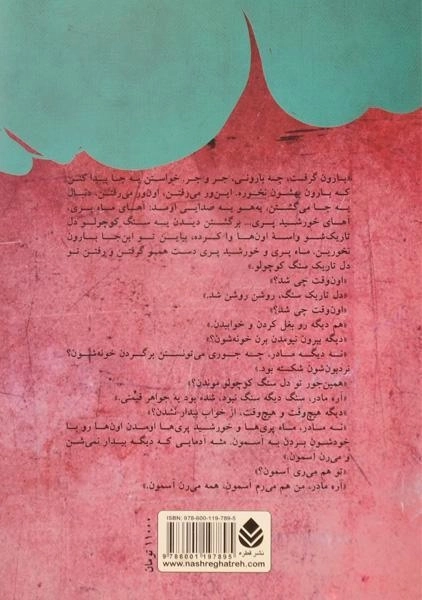 «بارون گرفت، چه بارونی، جر و جر. خواستن یه جا پیدا کنن
که بارون بهشون نخوره. این‌ور می‌رفتن، اون‌ور می‌رفتن، دنبال
یه جا می‌گشتن، یه‌هو یه صدایی اومد: آهای ماه پری،
آهای خورشید پری... برگشتن دیدن یه سنگ کوچولو دل
تاریکشو واسۀ اون‌ها وا کرده، بیاین تو این‌جا بارون
نخورین. ماه پری و خورشید پری دست همو گرفتن و رفتن تو
دل تاریک سنگ کوچولو.»
«اون‌وقت چی شد؟»
«دل تاریک سنگ، روشن روشن شد.»
«اون‌وقت چی شد؟»
«هم دیگه رو بغل کردن و خوابیدن.»
«دیگه بیرون نیومدن برن خونه‌شون؟»
«نه دیگه مادر، چه جوری می‌تونستن برگردن خونه‌شون؟
نردبون‌شون شکسته بود.»
«همین‌جور تو دل سنگ کوچولو موندن؟»
«آره مادر، سنگ دیگه سنگ نبود، شده بود یه جواهر قیمتی.»
«دیگه هیچ‌وقت و هیچ‌وقت، از خواب بیدار نشدن؟»
«نه مادر، ماه پری‌ها و خورشید پری‌ها اومدن اون‌ها رو با
خودشون بردن به آسمون. مثه آدمایی که دیگه بیدار نمی‌شن
و می‌رن آسمون.»
«تو هم می‌ری آسمون؟»
«آره مادر، من هم می‌رم آسمون، همه می‌رن آسمون.»
ISBN: 978-600-119-789-5
9 786001 197895
۱۱۰۰۰ تومان
نشر قطره
www.nashreghatreh.com